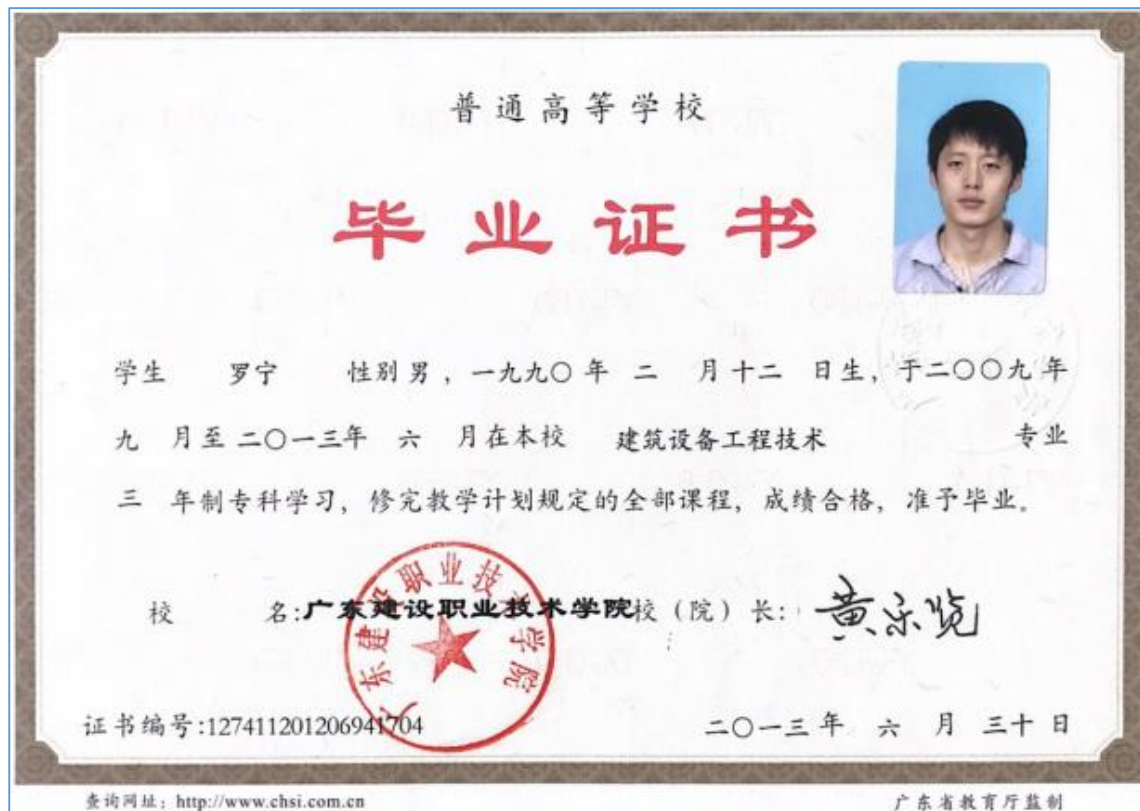 普通高等学校
毕业证书
学生 罗宁 性别男，一九九〇年 二 月十二 日生，于二〇〇九年
九 月至二〇一三年 六 月在本校 建筑设备工程技术 专业
三 年制专科学习，修完教学计划规定的全部课程，成绩合格，准予毕业。
校 名：广东建设职业技术学院 校（院）长：
广东建设职业技术学院
证书编号：127411201206941704
二〇一三年 六 月 三十 日
查询网址：http://www.chsi.com.cn
广东省教育厅监制